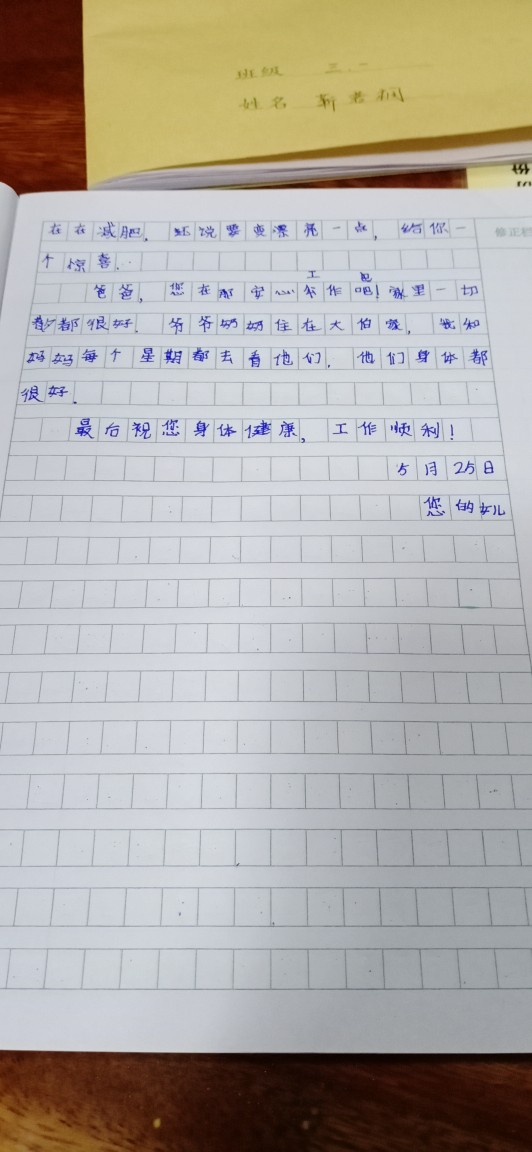 班级 三.二
姓名 靳若桐
修正栏
在在减肥，还说要变漂亮一点，给你一
个惊喜.
爸爸，您在那安心工作吧！家里一切
都很好. 爷爷奶奶住在大伯家，我和
妈妈每个星期都去看他们. 他们身体都
很好.
最后祝您身体健康，工作顺利！
5月25日
您的女儿